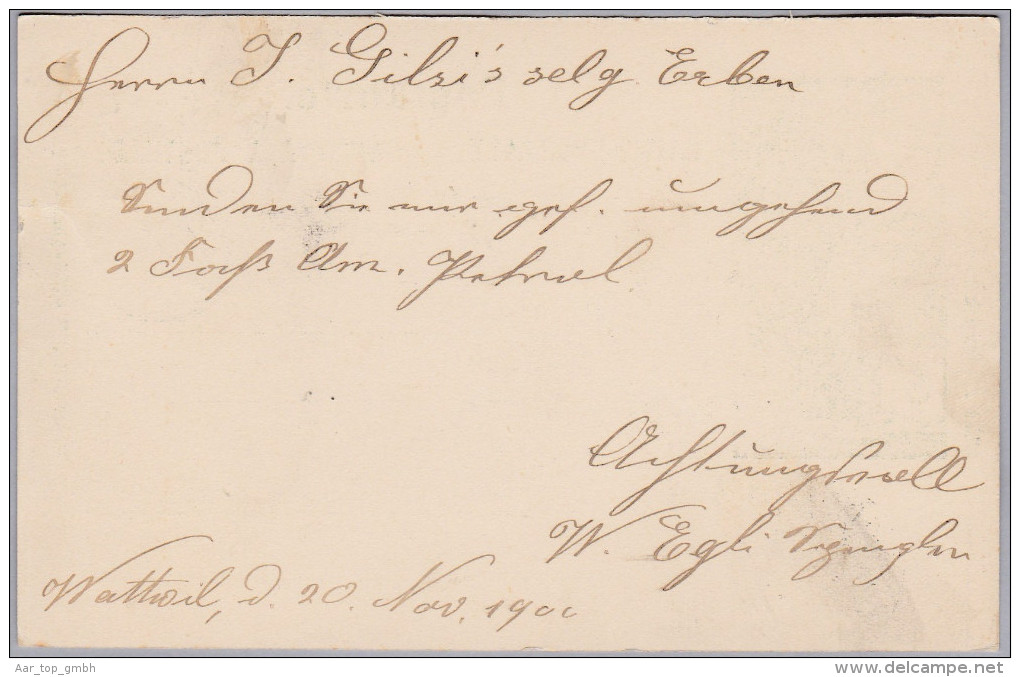 Herrn J. Gilzi's selg. Erben
Senden Sie mir gef. umgehend
2 Faß Am. Petrol.
Achtungsvoll
W. Egli Spengler
Wattwil, d. 20. Nov. 1900
Aar_top_gmbh
www.delcampe.net